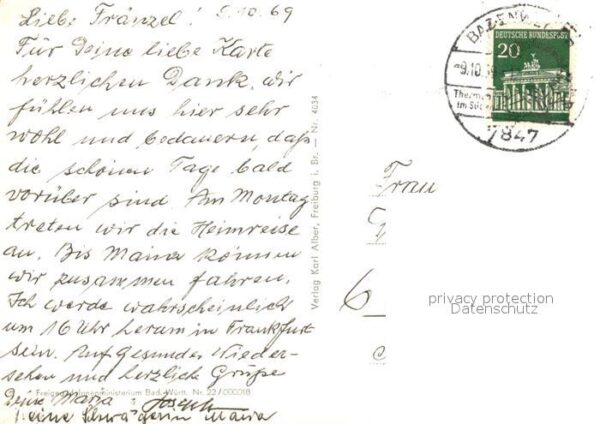 Liebe Fränzel! 9.10.69
Für Deine liebe Karte
herzlichen Dank, wir
fühlen uns hier sehr
wohl und bedauern, daß
die schönen Tage bald
vorüber sind. Am Montag
treten wir die Heimreise
an. Bis Mainz können
wir zusammen fahren.
Ich werde wahrscheinlich
um 16 Uhr herum in Frankfurt
sein. Auf gesundes Wieder-
sehen und herzliche Grüße
Freigeg. Innenministerium Bad.-Württ. Nr. 22/000018
Deine Maria
Joseph
Deine Schwägerin Maria
Verlag Karl Alber, Freiburg i. Br. – Nr. 4034
DEUTSCHE BUNDESPOST
20
-9.10.
Therm
im Süd
7847
Frau
6
privacy protection
Datenschutz